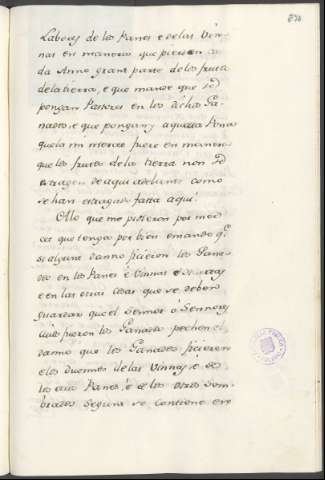 870
Labores de los Panes e de las Viñ-
nas en manera que pierden ca-
da Anno grant parte de los frutos
de la tierra, e que mande que se
pongan Pastores en los dichos Ga-
nados, e que pongan y aquella Pena
que la mi merced fuere en manera
que los frutos de la tierra non se
estragen de aqui adelante como
se han estragado fasta aqui.
A lo que me pidieron por mer-
cet que tenga por bien e mando q.e
si algunt danno ficieren los Gana-
dos en los Panes e Vinnas e
e en las otras cosas que se deben
guardar que el Sennor o Sennores
cuios fueren los Ganados pechen el
danno que los Ganados ficieren
a los duennos de las Vinnas, e de
los otros Panes, e de los otros Nom-
brados segunt se contiene en